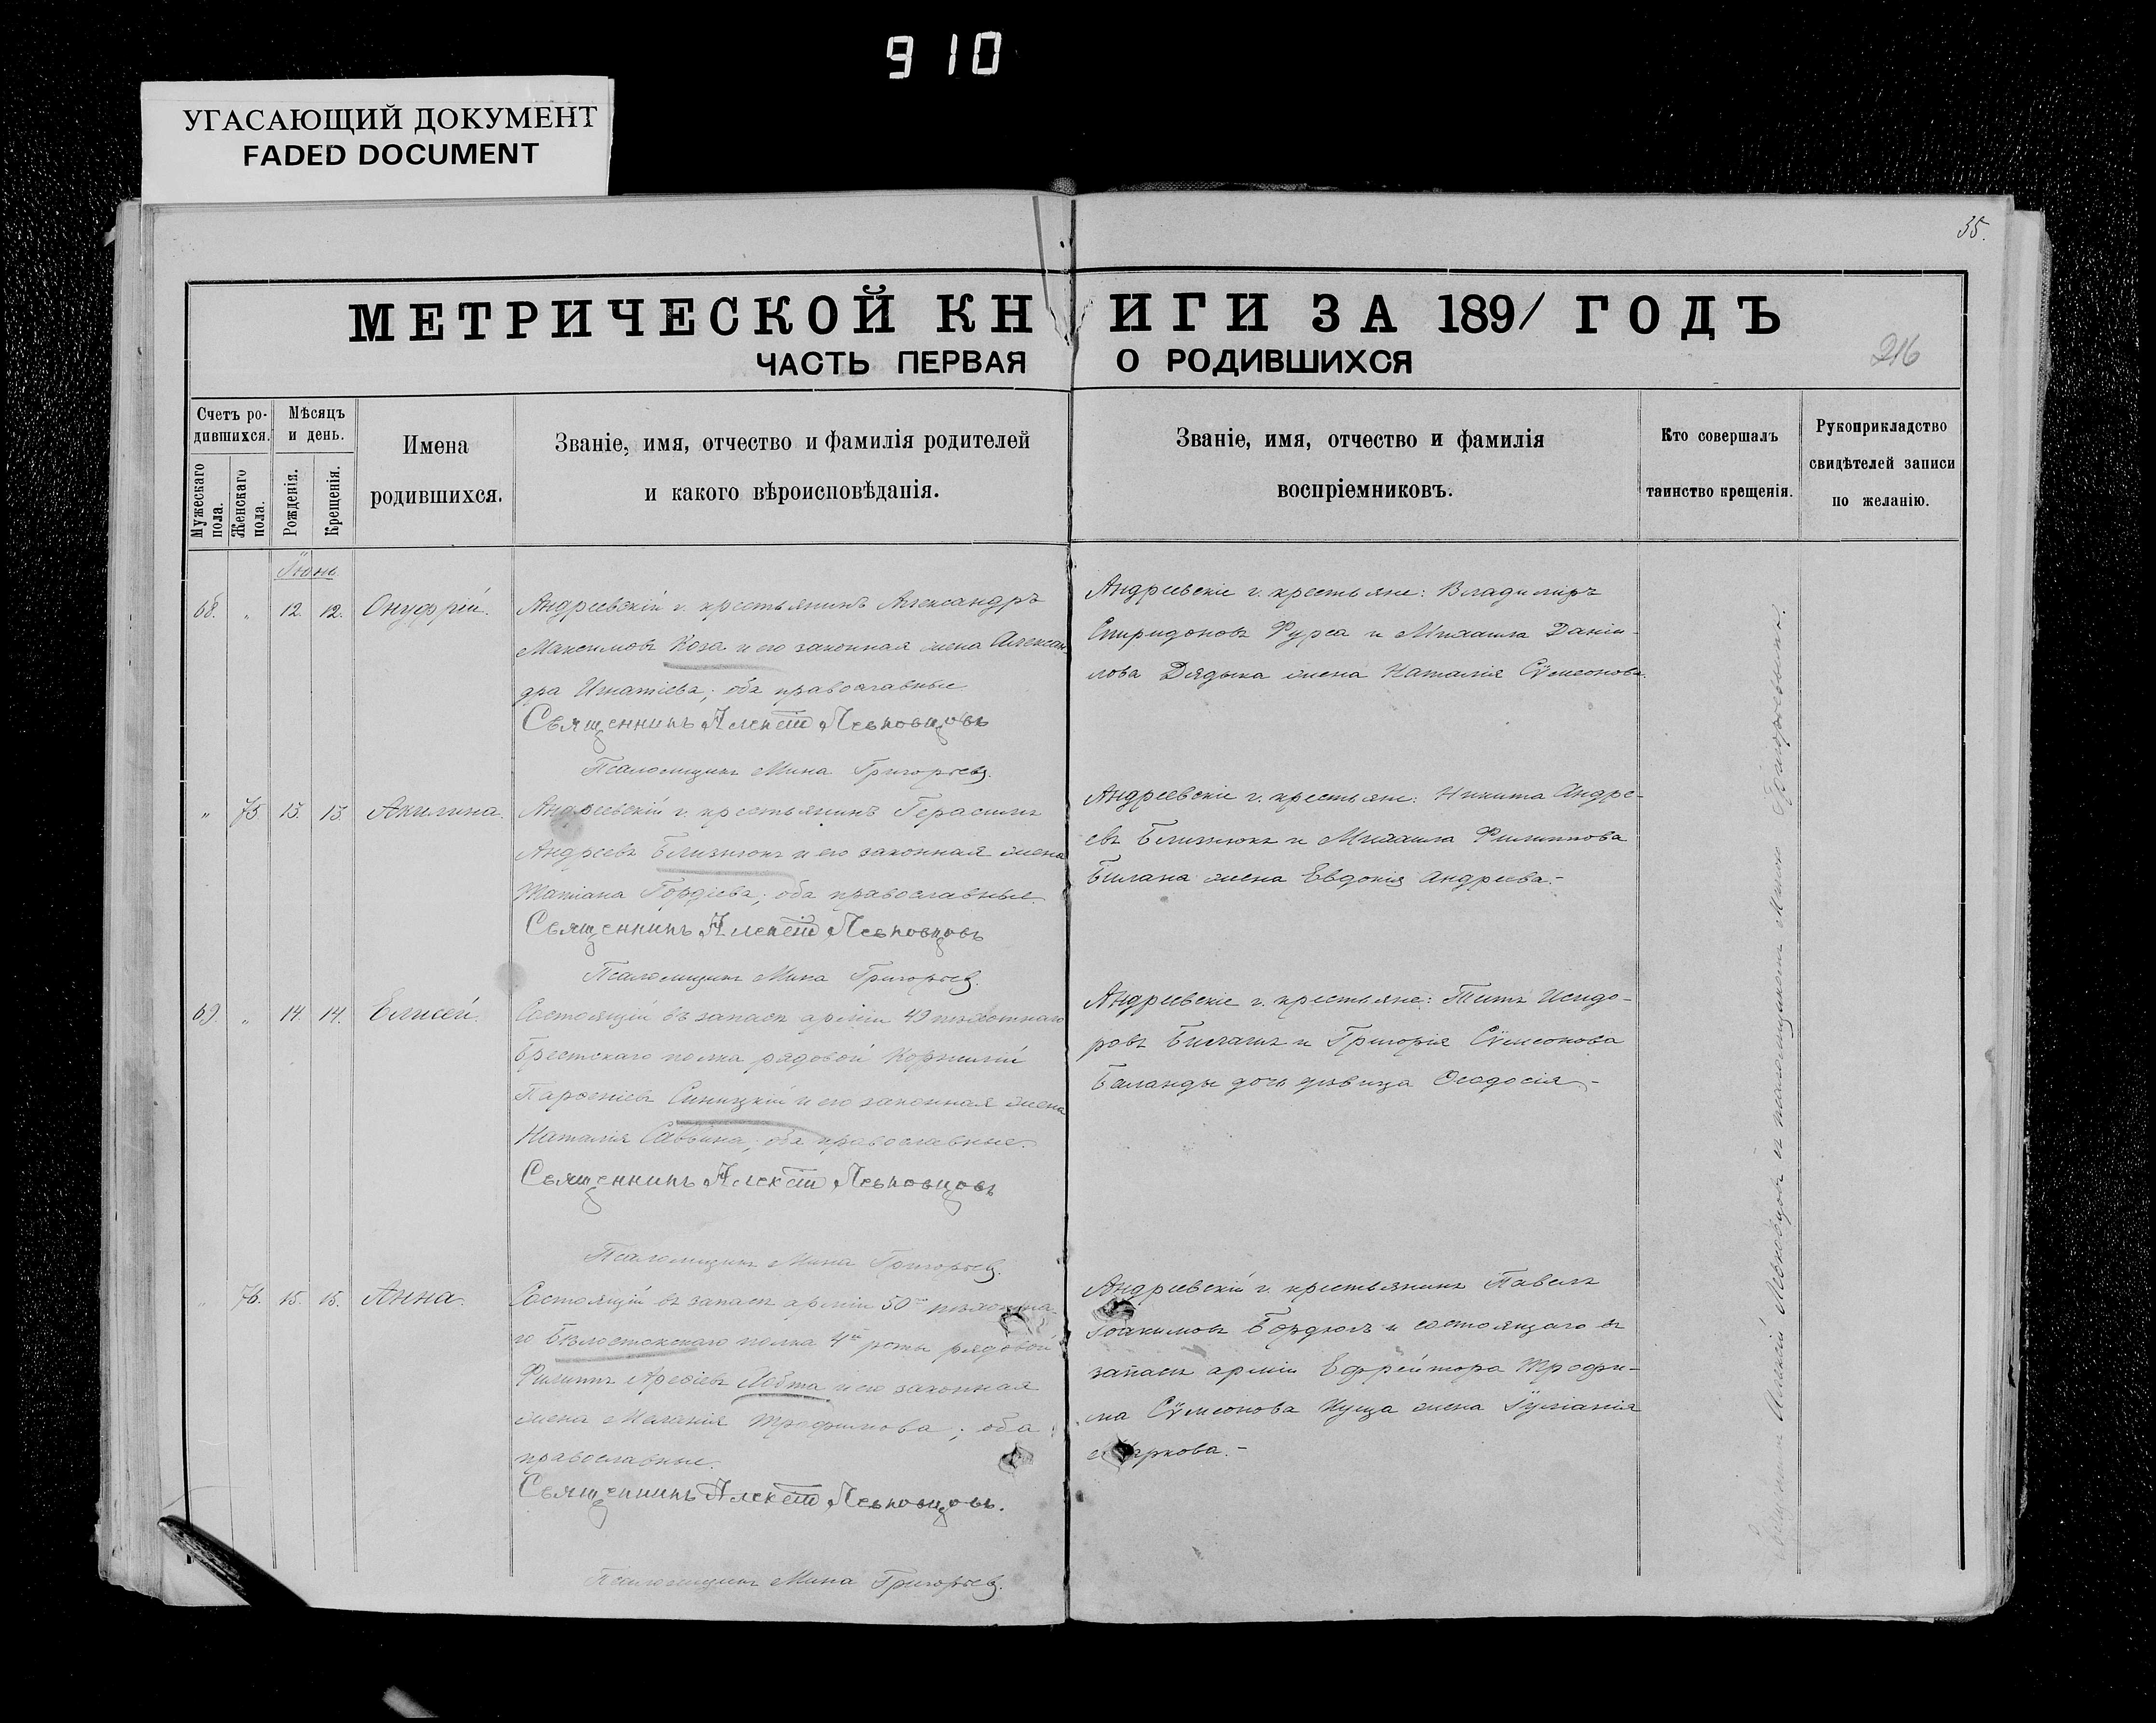 910
УГАСАЮЩИЙ ДОКУМЕНТ
FADED DOCUMENT
35.
МЕТРИЧЕСКОЙ КНИГИ ЗА 1891 ГОДЪ
ЧАСТЬ ПЕРВАЯ О РОДИВШИХСЯ
216
Счетъ ро-
дившихся.
Мужескаго пола.
Женскаго пола.
Мѣсяцъ
и день.
Рожденія.
Крещенія.
Имена
родившихся.
Званіе, имя, отчество и фамилія родителей
и какого вѣроисповѣданія.
Званіе, имя, отчество и фамилія
воспріемниковъ.
Кто совершалъ
таинство крещенія.
Рукоприкладство
свидѣтелей записи
по желанію.
Іюнь
68. " 12. 12. Онуфрій.
Андреевскій г. крестьянинъ Александръ
Максимовъ Коза и его законная жена Алексан
дра Игнатіева; оба православные
Священникъ Алексій Левковцовъ
Псаломщикъ Мина Григорьевъ.
Андреевскіе г. крестьяне: Владиміръ
Спиридоновъ Фурса и Михаила Даніи-
лова Дядыка жена Наталія Сѵмеонова.
" 75 13. 13. Акилина.
Андреевскій г. крестьянинъ Герасимъ
Андреевъ Близнюкъ и его законная жена
Татіана Гордіева; оба православные.
Священникъ Алексій Левковцовъ
Псаломщикъ Мина Григорьевъ.
Андреевскіе г. крестьяне: Никита Андре-
евъ Близнюкъ и Михаила Филиппова
Билана жена Евдокія Андреева.-
69. " 14. 14. Елисей.
Состоящій въ запасѣ арміи 49 пѣхотнаго
Брестскаго полка рядовой Корнилій
Парѳеніевъ Синицкій и его законная жена
Наталія Саввина; оба православные.
Священникъ Алексій Левковцовъ
Псаломщикъ Мина Григорьевъ.
Андреевскіе г. крестьяне: Титъ Исидо-
ровъ Биланъ и Григорія Сѵмеонова
Баланды дочь дѣвица Ѳеодосія -
" 76. 15. 15. Анна.
Состоящій въ запасѣ арміи 50го пѣхотна-
го Бѣлостокскаго полка 4й роты рядовой
Филиппъ и его законная
жена Меланія Трофимова; оба
православные.
Священникъ Алексій Левковцовъ.
Псаломщикъ Мина Григорьевъ.
Андреевскій г. крестьянинъ Павелъ
Іоакимовъ и состоящаго въ
запасѣ арміи Ефрейтора Трофи-
ма Сѵмеонова Куща жена Іуліанія
Маркова.-
Священникъ Алексій Левковцовъ съ псаломщикомъ Миною Григорьевымъ.